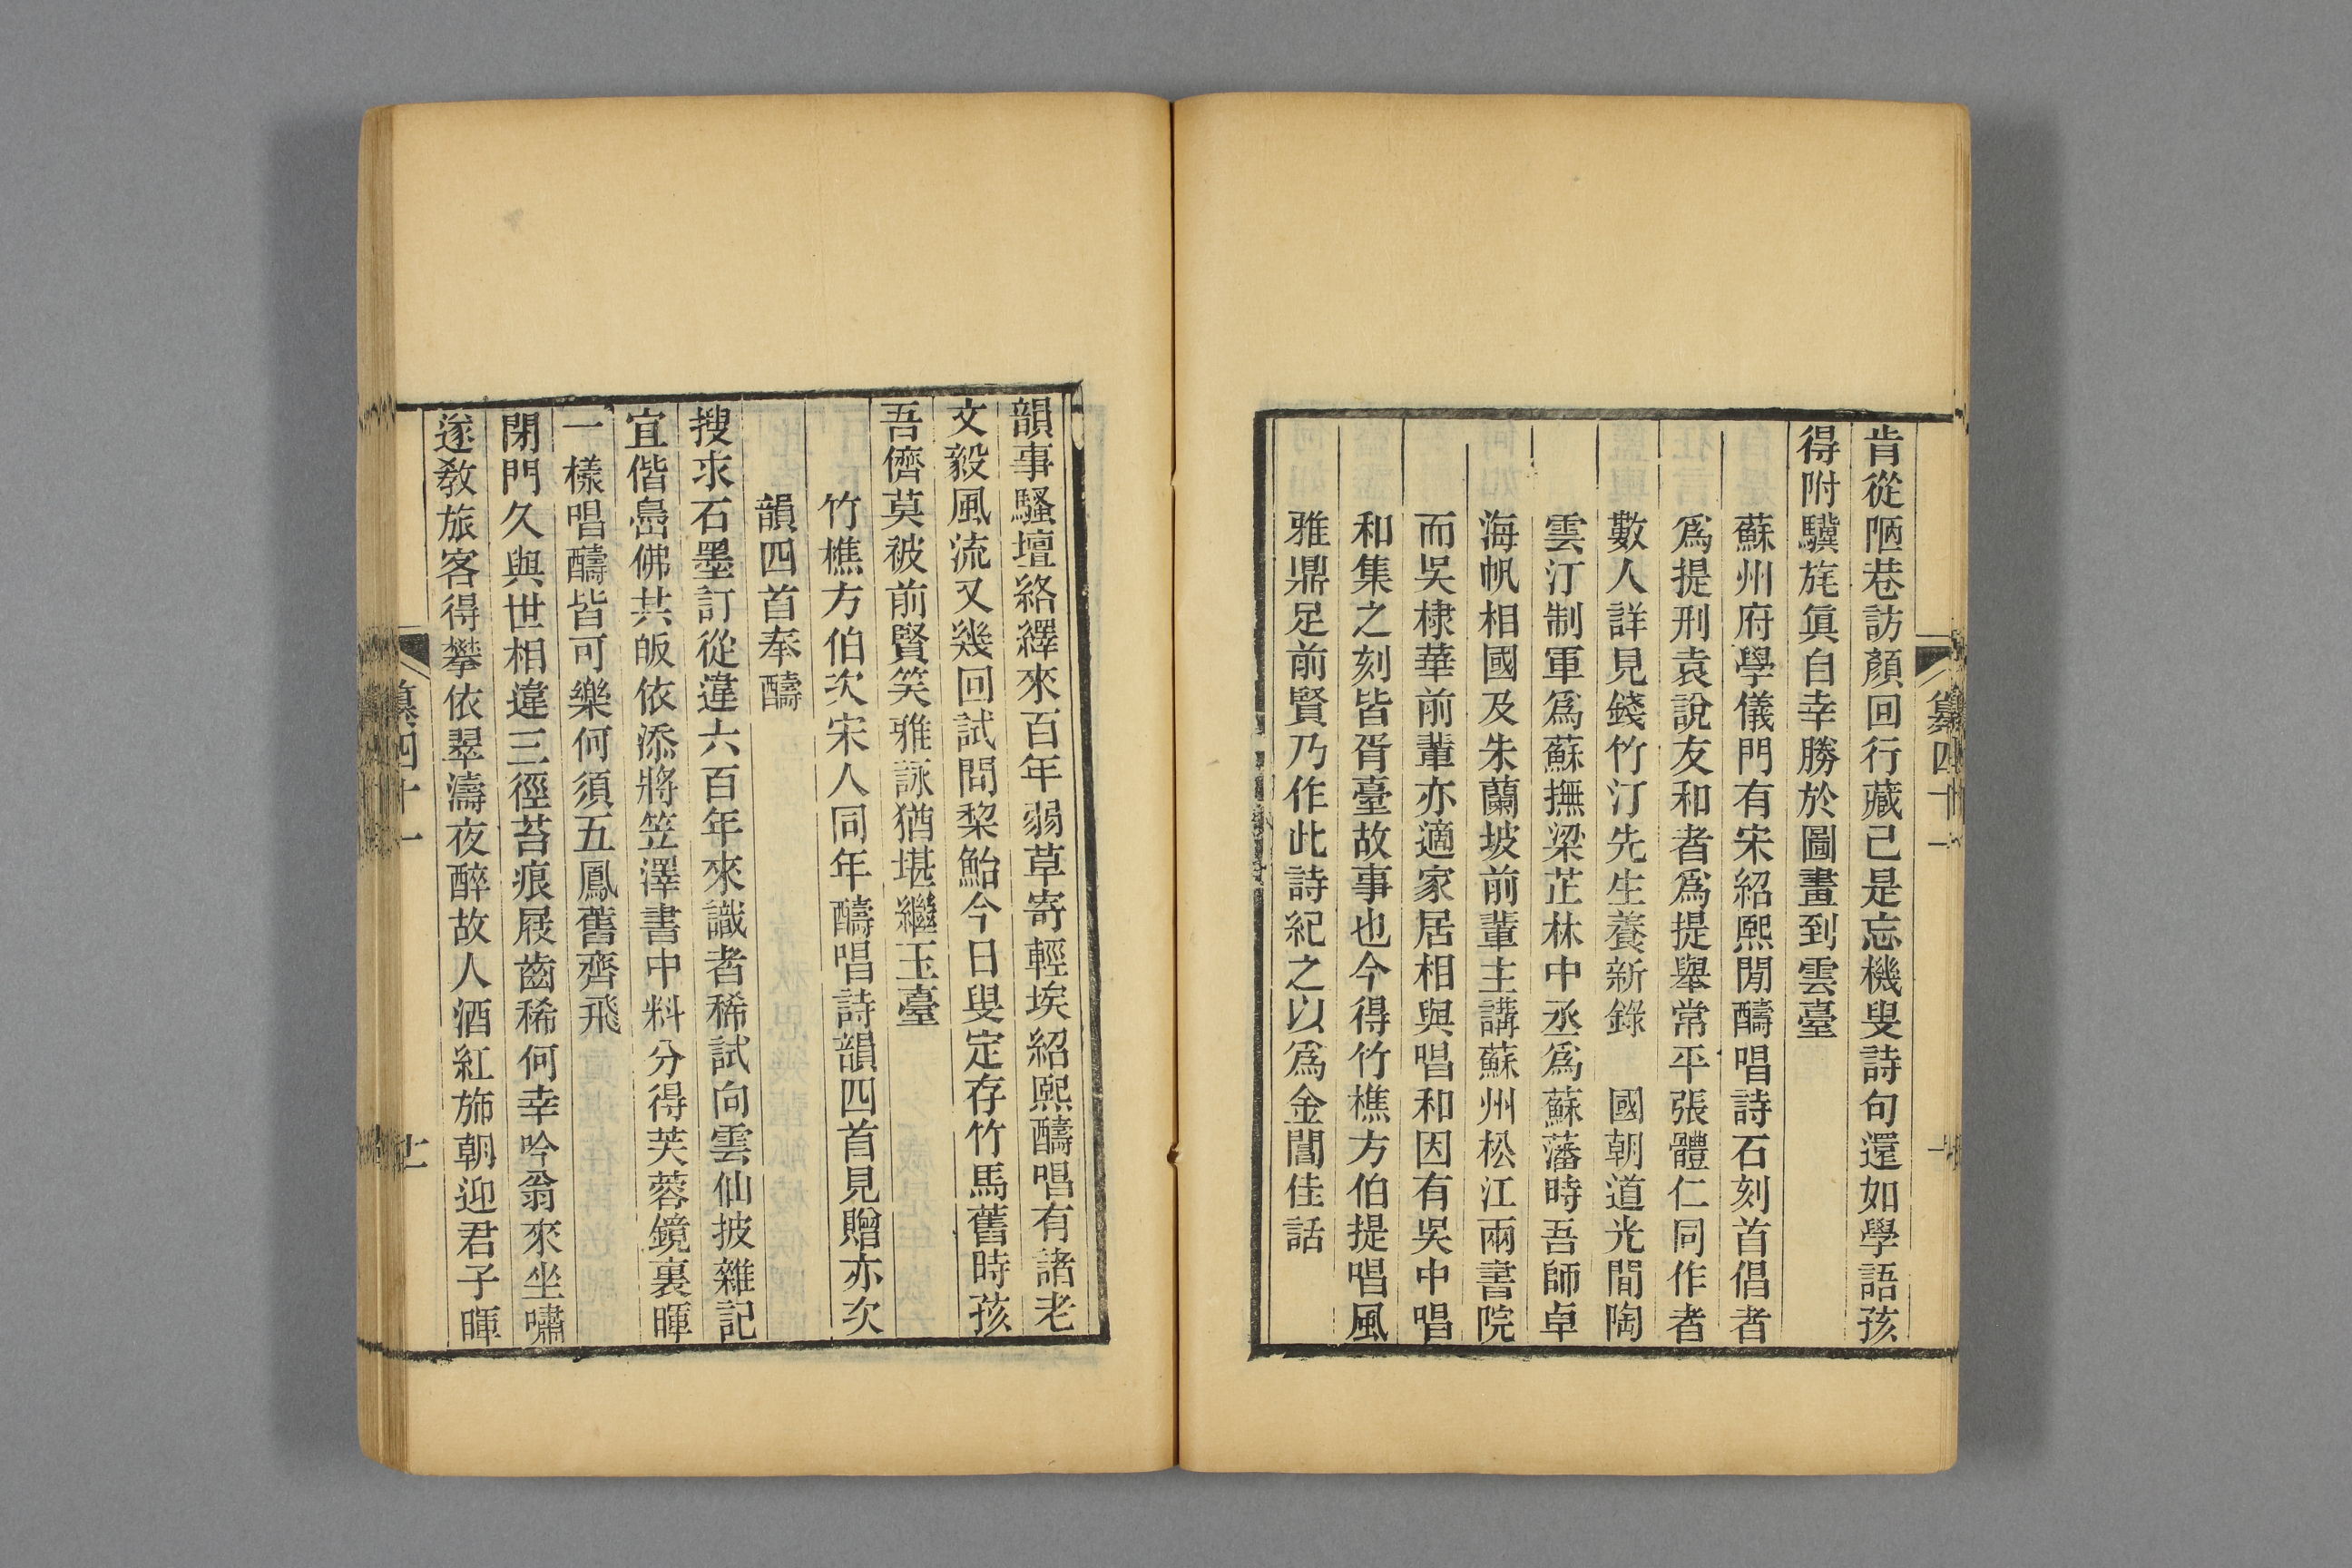 肯從陋巷訪顏回行藏己是忘機叟詩句還如學語孩
得附驥旄眞自幸勝於圖畫到雲臺
蘇州府學儀門有宋紹熙閒醻唱詩石刻首倡者
爲提刑袁說友和者爲提舉常平張體仁同作者
數人詳見錢竹汀先生養新錄　國朝道光閒陶
雲汀制軍爲蘇撫梁芷林中丞爲蘇藩時吾師卓
海帆相國及朱蘭坡前輩主講蘇州松江兩書院
而吳棣華前輩亦適家居相與唱和因有吳中唱
和集之刻皆胥臺故事也今得竹樵方伯提唱風
雅鼎足前賢乃作此詩紀之以爲金閶佳話
韻事騷壇絡繹來百年弱草寄輕埃紹熙醻唱有諸老
文毅風流又幾回試問棃鮐今日叟定存竹馬舊時孩
吾儕莫被前賢笑雅詠猶堪繼玉臺
竹樵方伯次宋人同年醻唱詩韻四首見贈亦次
韻四首奉醻
搜求石墨訂從違六百年來識者稀試向雲仙披雜記
宜偕島佛共皈依添將笠澤書中料分得芙蓉鏡裏暉
一樣唱醻皆可樂何須五鳳舊齊飛
閉門久與世相違三徑苔痕屐齒稀何幸吟翁來坐嘯
遂敎旅客得攀依翠濤夜醉故人酒紅斾朝迎君子暉
纂四十一
十一